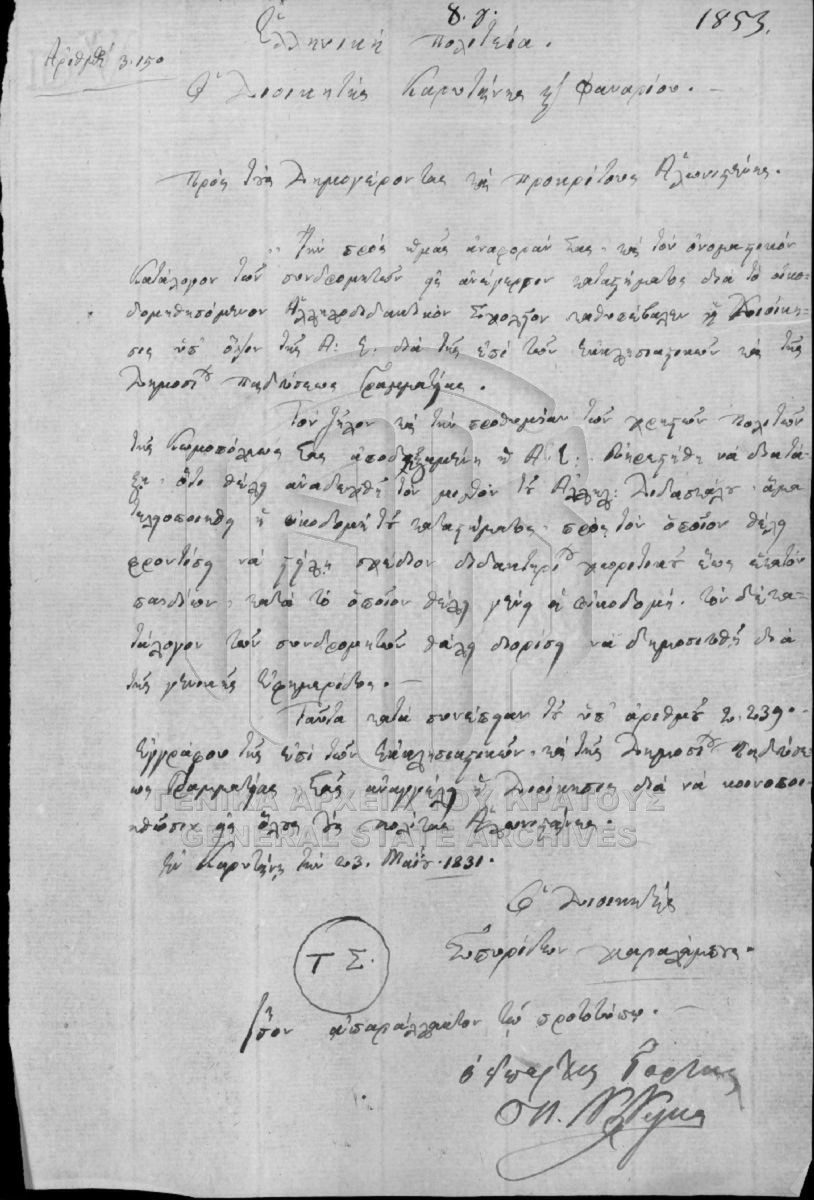 8. γ.
1853.
Ἀριθμ. 3.150
Ἑλληνική Πολιτεία.
Ὁ Διοικητής Καρυταίνης καί Φαναρίου.
Πρός τούς Δημογέροντας καί προκρίτους Ἀλωνισταίνης.
Τήν πρός ἡμᾶς ἀναφοράν σας, καί τόν ὀνομαστικόν
κατάλογον τῶν συνδρομητῶν εἰς ἀνέγερσιν καταστήματος διά τό οἰκο-
δομηθησόμενον Ἀλληλοδιδακτικόν Σχολεῖον καθυπέβαλεν ἡ Διοίκη-
σις ὑπ' ὄψιν τῆς Α. Ε. διά τῆς ἐπί τῶν Ἐκκλησιαστικῶν καί τῆς
Δημοσίου Παιδεύσεως Γραμματείας.
Τόν ζῆλον καί τήν προθυμίαν τῶν χρηστῶν πολιτῶν
τῆς Κωμοπόλεως σας ἀποδεξαμένη ἡ Α. Ε. εὐηρεστήθη νά διατά-
ξῃ, ὅτι θέλει ἀναδεχθῆ τόν μισθόν τοῦ Ἀλληλ: Διδασκάλου, ἅμα
τελειοποιηθῇ ἡ οἰκοδομή τοῦ καταστήματος, πρός τόν ὁποῖον θέλει
φροντίσῃ νά στείλῃ σχέδιον διδακτηρίου χωρητικοῦ ἕως ἑκατόν
παιδίων, κατά τό ὁποῖον θέλει γένῃ ἡ οἰκοδομή. τόν δέ κα-
τάλογον τῶν συνδρομητῶν θέλει διορίσῃ νά δημοσιευθῇ διά
τῆς γενικῆς Ἐφημερίδος.
Ταῦτα κατά συνέπειαν τοῦ ὑπ' ἀριθμόν 2.239.
ἐγγράφου τῆς ἐπί τῶν Ἐκκλησιαστικῶν καί τῆς Δημοσίου Παιδεύσε-
ως Γραμματείας, σᾶς ἀναγγέλει ἡ Διοίκησις διά νά κοινοποι-
ηθῶσιν εἰς ὅλους τούς πολίτας Ἀλωνισταίνης.
Ἐν Καρυταίνῃ τήν 23. Μαΐου. 1831.
Ὁ Διοικητής
Τ Σ.
Σπυρίδων Χαραλάμπης.
Ἴσον ἀπαράλλακτον τῷ πρωτοτύπῳ.
ὁ Ἔπαρχος Γόρτυνος
ΓΕΝΙΚΑ ΑΡΧΕΙΑ ΤΟΥ ΚΡΑΤΟΥΣ
GENERAL STATE ARCHIVES